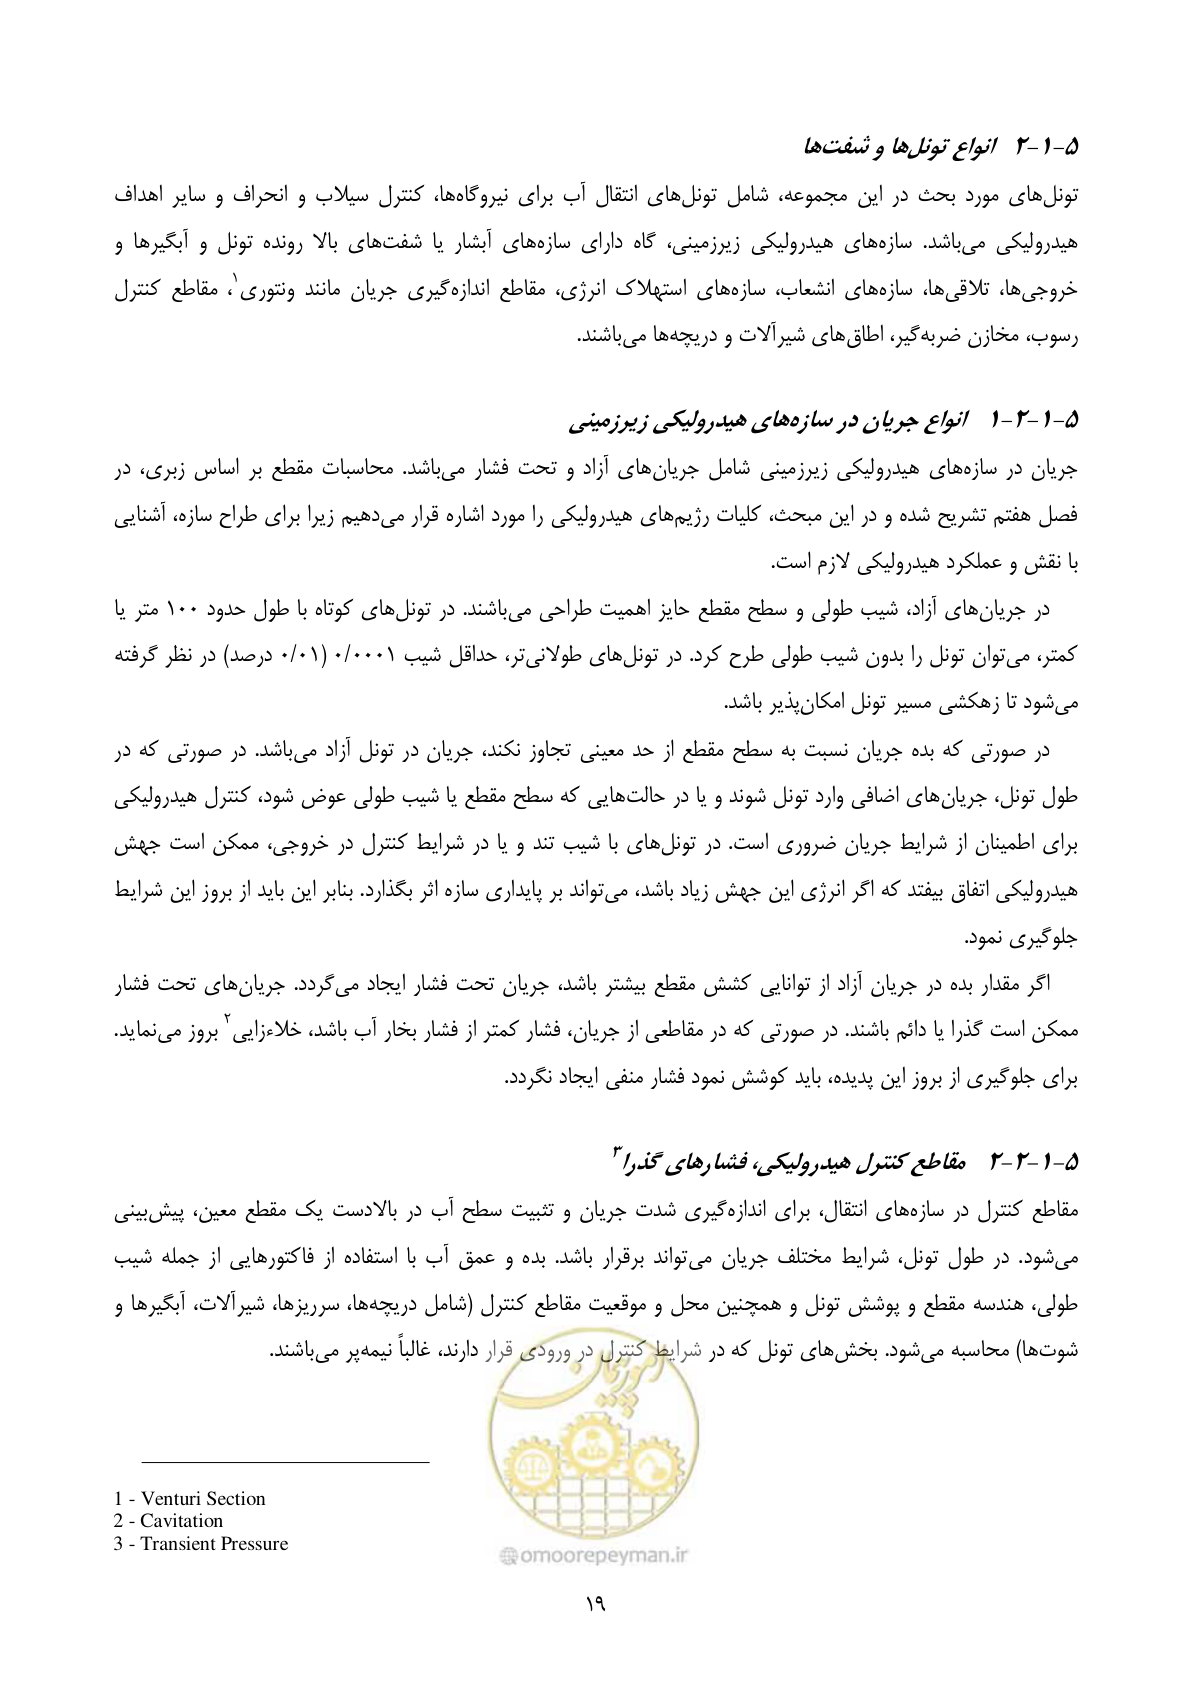 ۵-۱-۲ انواع تونل‌ها و شفت‌ها
تونل‌های مورد بحث در این مجموعه، شامل تونل‌های انتقال آب برای نیروگاه‌ها، کنترل سیلاب و انحراف و سایر اهداف
هیدرولیکی می‌باشد. سازه‌های هیدرولیکی زیرزمینی، گاه دارای سازه‌های آبشار یا شفت‌های بالا رونده تونل و آبگیرها و
خروجی‌ها، تلاقی‌ها، سازه‌های انشعاب، سازه‌های استهلاک انرژی، مقاطع اندازه‌گیری جریان مانند ونتوری۱، مقاطع کنترل
رسوب، مخازن ضربه‌گیر، اطاق‌های شیرآلات و دریچه‌ها می‌باشند.
۵-۱-۲-۱ انواع جریان در سازه‌های هیدرولیکی زیرزمینی
جریان در سازه‌های هیدرولیکی زیرزمینی شامل جریان‌های آزاد و تحت فشار می‌باشد. محاسبات مقطع بر اساس زبری، در
فصل هفتم تشریح شده و در این مبحث، کلیات رژیم‌های هیدرولیکی را مورد اشاره قرار می‌دهیم زیرا برای طراح سازه، آشنایی
با نقش و عملکرد هیدرولیکی لازم است.
در جریان‌های آزاد، شیب طولی و سطح مقطع حایز اهمیت طراحی می‌باشند. در تونل‌های کوتاه با طول حدود ۱۰۰ متر یا
کمتر، می‌توان تونل را بدون شیب طولی طرح کرد. در تونل‌های طولانی‌تر، حداقل شیب ۰/۰۰۰۱ (۰/۰۱ درصد) در نظر گرفته
می‌شود تا زهکشی مسیر تونل امکان‌پذیر باشد.
در صورتی که بده جریان نسبت به سطح مقطع از حد معینی تجاوز نکند، جریان در تونل آزاد می‌باشد. در صورتی که در
طول تونل، جریان‌های اضافی وارد تونل شوند و یا در حالت‌هایی که سطح مقطع یا شیب طولی عوض شود، کنترل هیدرولیکی
برای اطمینان از شرایط جریان ضروری است. در تونل‌های با شیب تند و یا در شرایط کنترل در خروجی، ممکن است جهش
هیدرولیکی اتفاق بیفتد که اگر انرژی این جهش زیاد باشد، می‌تواند بر پایداری سازه اثر بگذارد. بنابر این باید از بروز این شرایط
جلوگیری نمود.
اگر مقدار بده در جریان آزاد از توانایی کشش مقطع بیشتر باشد، جریان تحت فشار ایجاد می‌گردد. جریان‌های تحت فشار
ممکن است گذرا یا دائم باشند. در صورتی که در مقاطعی از جریان، فشار کمتر از فشار بخار آب باشد، خلاءزایی۲ بروز می‌نماید.
برای جلوگیری از بروز این پدیده، باید کوشش نمود فشار منفی ایجاد نگردد.
۵-۱-۲-۲ مقاطع کنترل هیدرولیکی، فشارهای گذرا۳
مقاطع کنترل در سازه‌های انتقال، برای اندازه‌گیری شدت جریان و تثبیت سطح آب در بالادست یک مقطع معین، پیش‌بینی
می‌شود. در طول تونل، شرایط مختلف جریان می‌تواند برقرار باشد. بده و عمق آب با استفاده از فاکتورهایی از جمله شیب
طولی، هندسه مقطع و پوشش تونل و همچنین محل و موقعیت مقاطع کنترل (شامل دریچه‌ها، سرریزها، شیرآلات، آبگیرها و
شوت‌ها) محاسبه می‌شود. بخش‌های تونل که در شرایط کنترل در ورودی قرار دارند، غالباً نیمه‌پر می‌باشند.
امور پیمان
1 - Venturi Section
2 - Cavitation
3 - Transient Pressure
@omoorepeyman.ir
۱۹